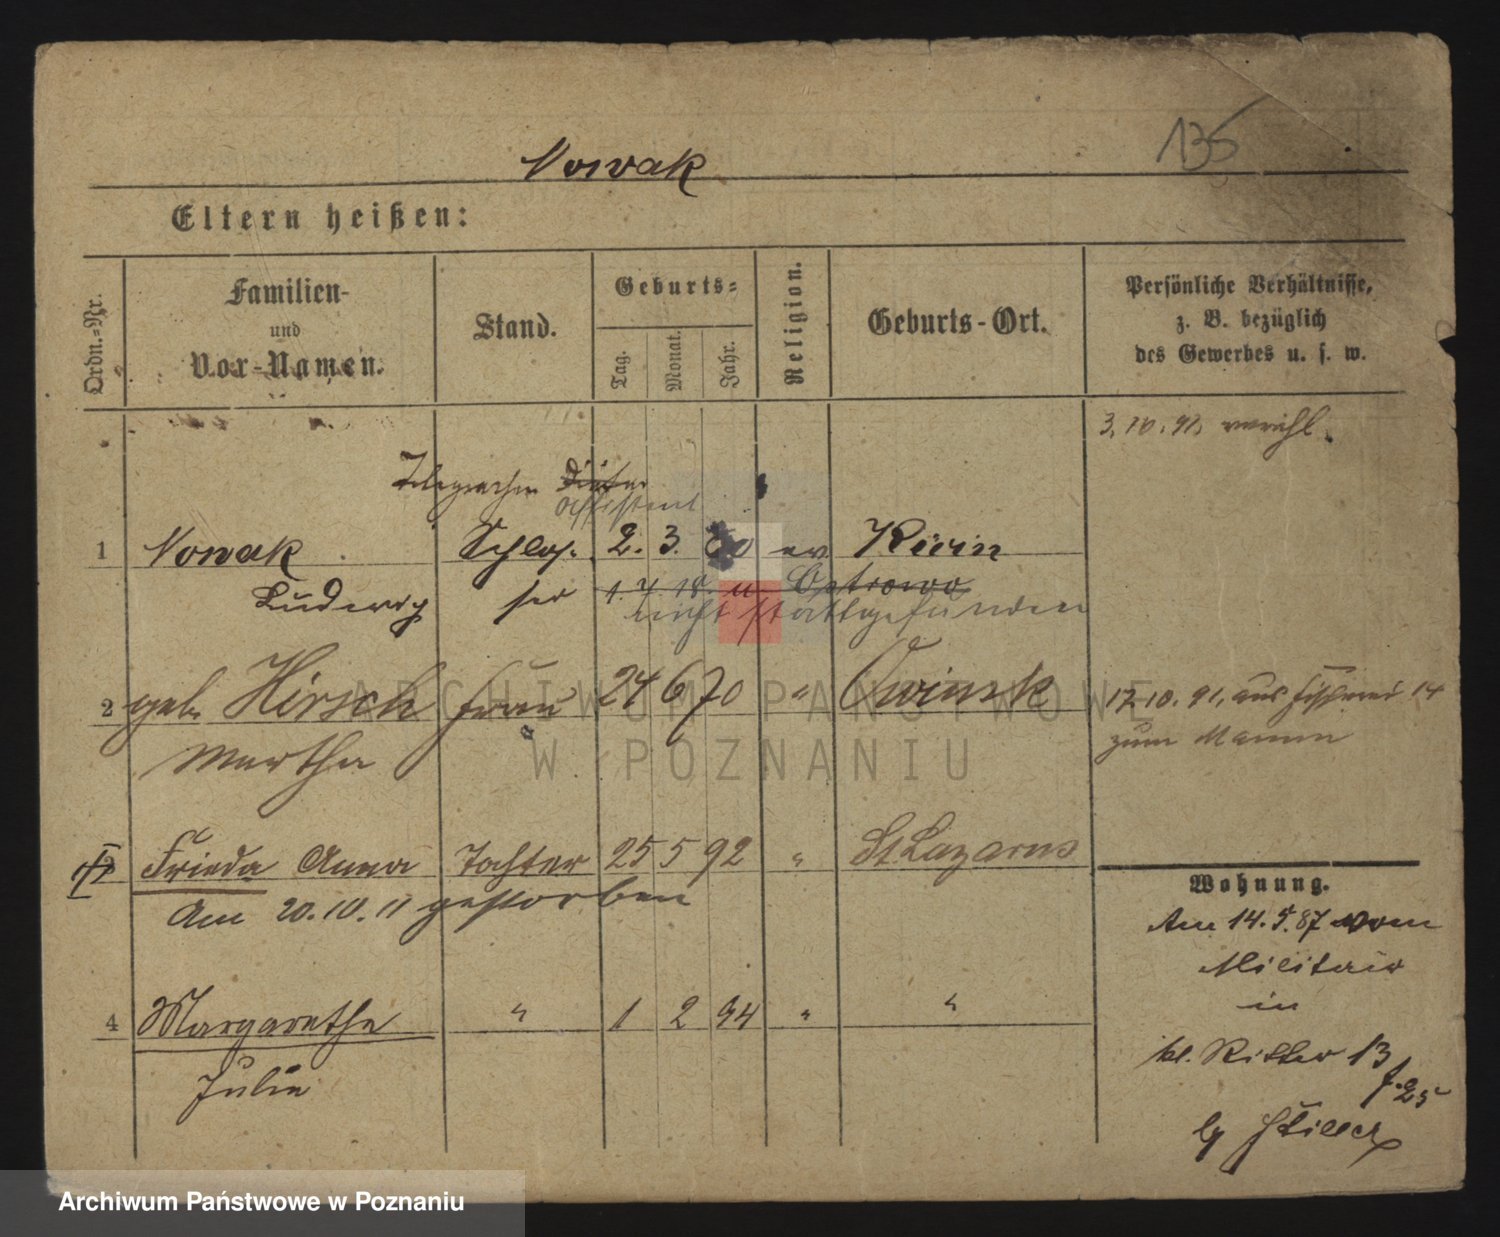 135
Nowak
Eltern heißen:
Ordn.-Nr.
Familien-
und
Vor-Namen.
Stand.
Geburts-
Tag.
Monat.
Jahr.
Religion.
Geburts-Ort.
Persönliche Verhältnisse,
z. B. bezüglich
des Gewerbes u. s. w.
3.10.91.
Telegraphen Diätar
Assistent
1 Nowak Schlos- 2. 3. ev. Kcin
Ludwig ser 1. 4. u. Ostrowo
nicht stattgefunden
2 geb. Hirsch Frau 24 6 70 " Owinsk 17.10.91. aus Fischerei 14
Martha zum Mann
3 Frieda Anna Tochter 25 5 92 " St Lazarus
Am 20.10.11 gestorben
Wohnung.
Am 14.5.87 vom
Militair
in
kl. Ritter 13
4 Margarethe " 1 2 94 " "
Julie
b/ Stiller
ARCHIWUM PAŃSTWOWE
W POZNANIU
Archiwum Państwowe w Poznaniu